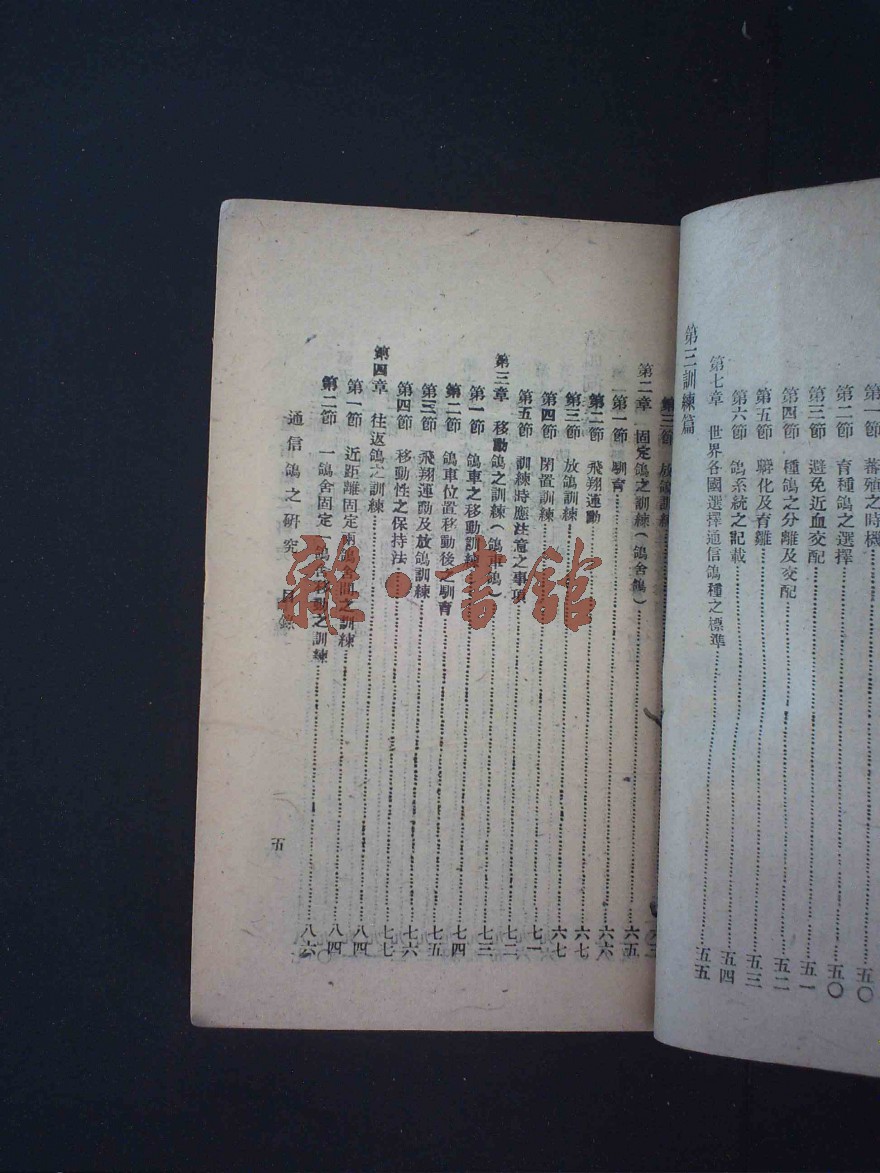 第一節 蕃殖之時機 五〇
第二節 育種鴿之選擇 五〇
第三節 避免近血交配 五一
第四節 種鴿之分離及交配 五二
第五節 孵化及育雛 五三
第六節 鴿系統之記載 五四
第七章 世界各國選擇通信鴿種之標準 五五
第三訓練篇
第三節 放鴿訓練
第二章 固定鴿之訓練(鴿舍鴿)
第一節 馴育 六五
第二節 飛翔運動 六六
第三節 放鴿訓練 六七
第四節 閉置訓練 六七
第五節 訓練時應注意之事項 七一
第三章 移動鴿之訓練(鴿車鴿) 七二
第一節 鴿車之移動訓練 七三
第二節 鴿車位置移動後之馴育 七四
第三節 飛翔運動及放鴿訓練 七五
第四節 移動性之保持法 七六
第四章 往返鴿之訓練 七七
第一節 近距離固定兩鴿舍間之訓練 八四
第二節 一鴿舍固定一鴿舍移動之訓練 八四
八六
通信鴿之研究 目錄
五
雜·書館